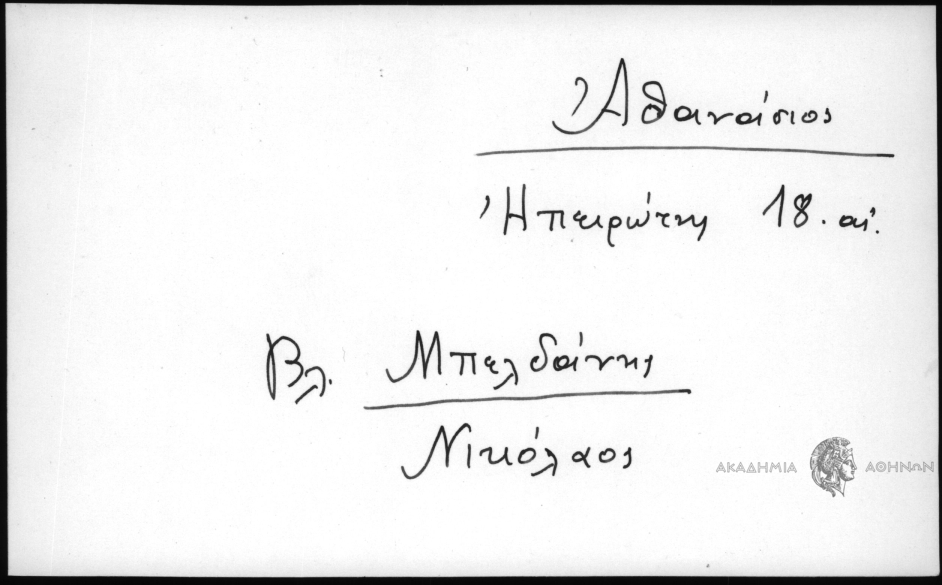 Ἀθανάσιος
Ἠπειρώτης 18. αἰ.
Βλ. Μπελδάνης
Νικόλαος
ΑΚΑΔΗΜΙΑ ΑΘΗΝΩΝ